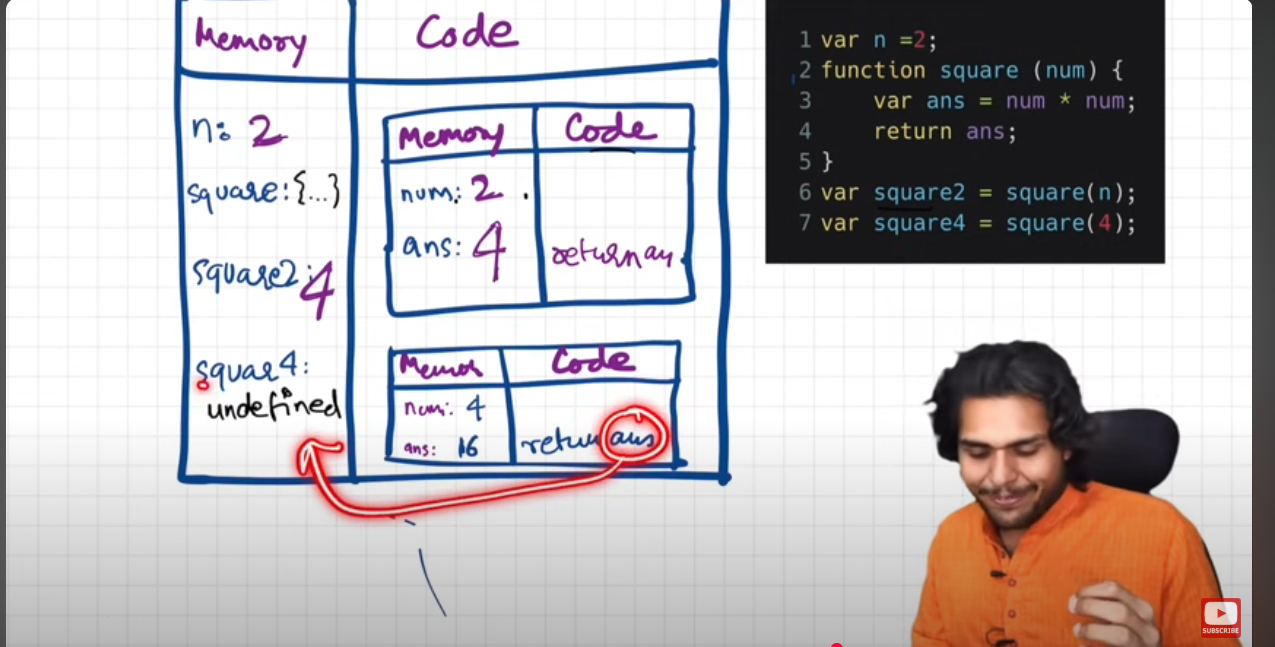 Memory Code
n: 2
square:{...}
square2: 4
squar4:
undefined
Memory Code
num: 2
ans: 4
return an
Memor Code
num: 4
ans: 16
return ans
1 var n =2;
2 function square (num) {
3 var ans = num * num;
4 return ans;
5 }
6 var square2 = square(n);
7 var square4 = square(4);
SUBSCRIBE